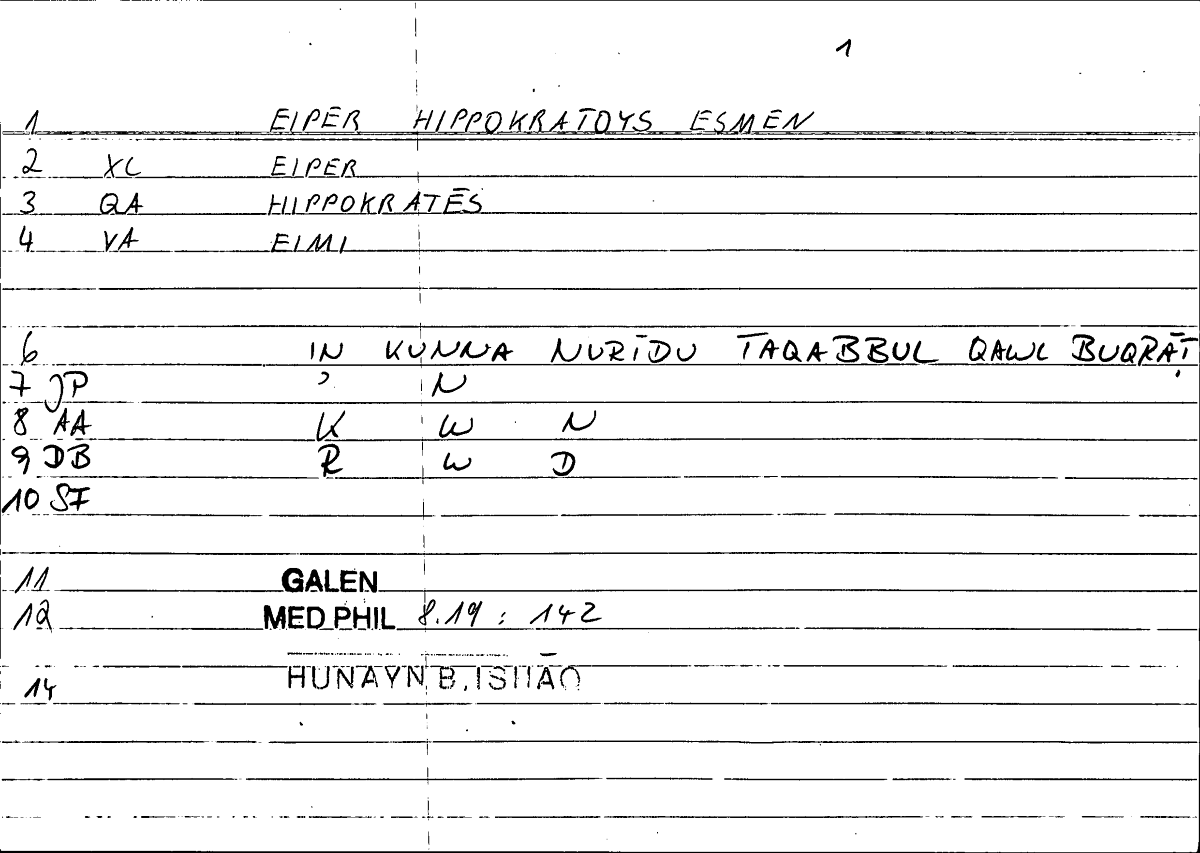 1
1 EIPER HIPPOKRATOYS ESMEN
2 XL EIPER
3 QA HIPPOKRATĒS
4 VA EIMI
6 IN KUNNA NURĪDU TAQABBUL QAWL BUQRĀṬ
7 JP ʾ N
8 AA K W N
9 DB R W D
10 SF
11 GALEN
12 MED PHIL 8.19 : 142
14 HUNAYN B. ISḤĀQ